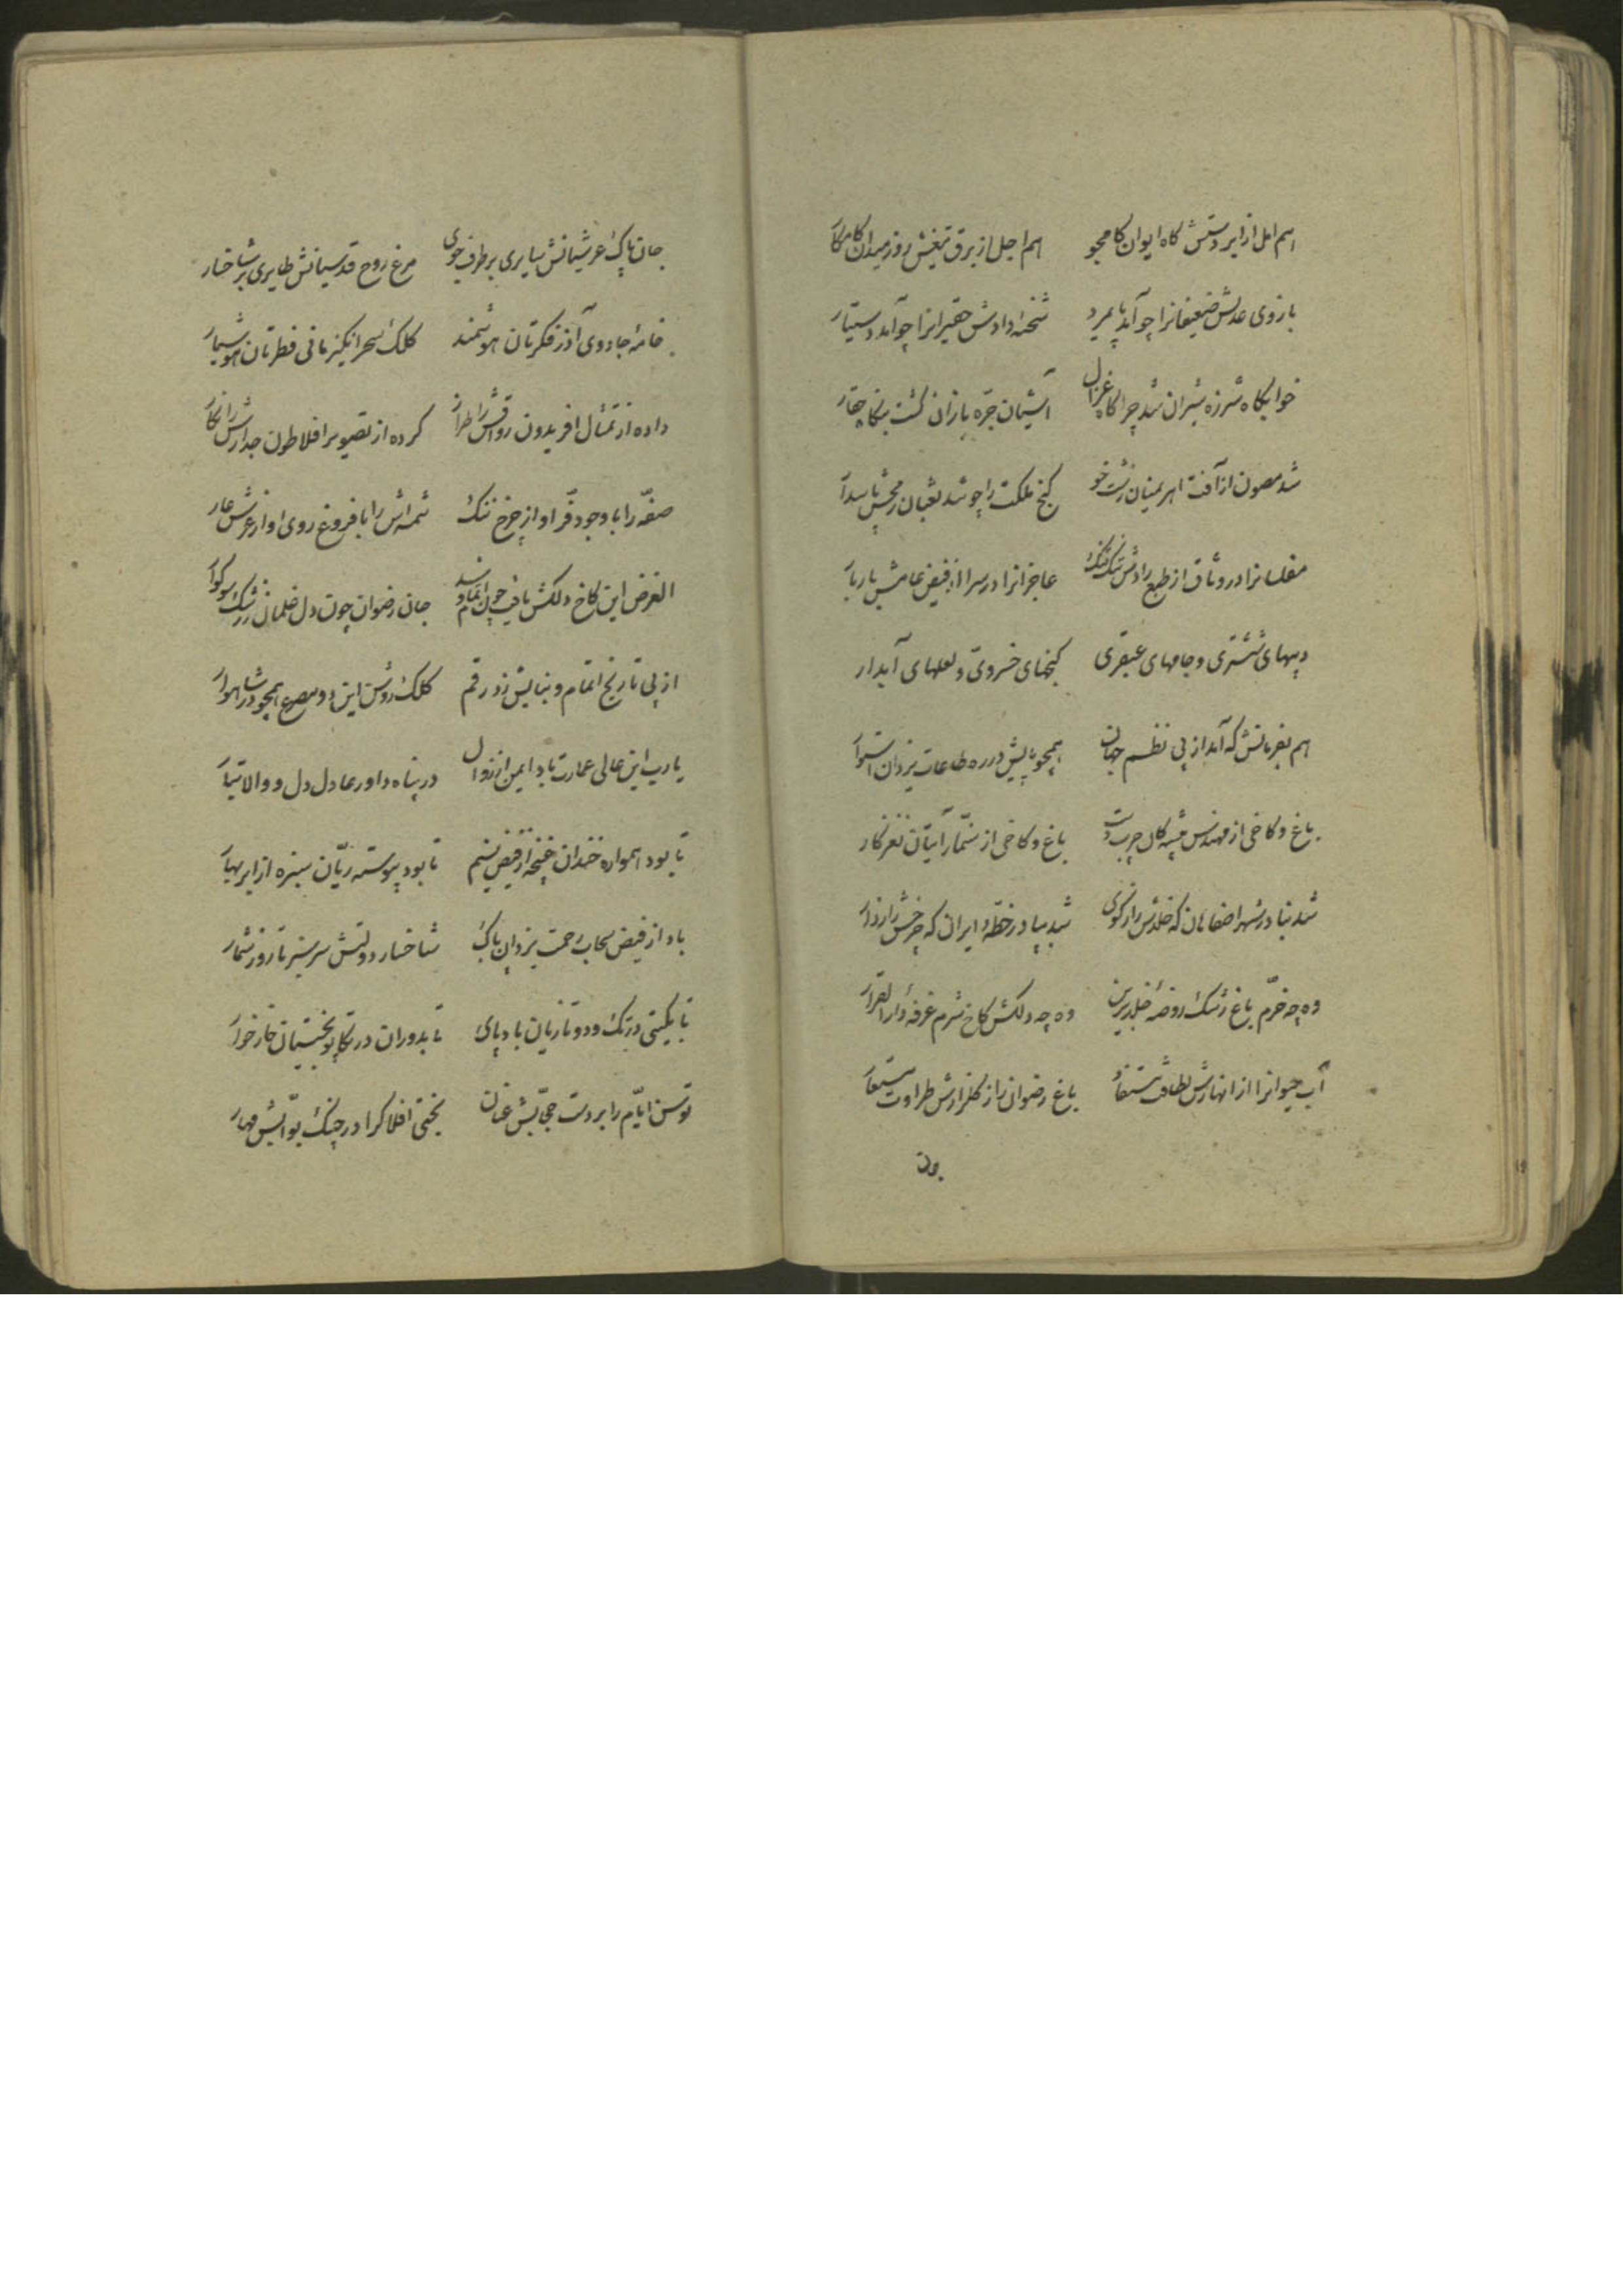 هم امل از ابر دستش گاه ایوان کامجو هم اجل از برق تیغش روز میدان کامکار
بازوی عدلش ضعیفانرا چو آمد پایمرد شحنهٔ دادش حقیرانرا چو آمد دستیار
خوابگاه شرزه شیران شد چراگاه غزال آشیان جره بازان گشت
شد مصون از آفت اهریمنان زشت خو گنج ملکت را چو شد ثعبان رمحش پاسدار
مفلسانرا در وثاق از طبع رادش تنک تنک عاجزانرا در سرا از فیض عامش بار بار
دیبهای ششتری و جامهای عبقری گنجهای خسروی و لعلهای آبدار
هم بفرمانش که آمد از پی نظم جهان همچو پایش در ره طاعات یزدان استوار
باغ و کاخی از مهندس پیشه کان چرب دست باغ و کاخی از سنمار آیتان نغز کار
شد بنا در شهر اصفاهان که خلدش راز کوی شد بپا در خطهٔ ایران که چرخش
وه چه خرم باغ رشک روضهٔ خلد برین وه چه دلکش کاخ شرم غرفهٔ دار القرار
آب حیوانرا از انهارش لطافت مستفاد باغ رضوان را ز گلزارش طراوت مستعار
جان پاک عرشیانش سایری بر طرف جوی مرغ روح قدسیانش طایری بر شاخسار
خامهٔ جادوی آذر فکرتان هوشمند کلک سحر انگیز مانی فطرتان هوشیار
داده از تمثال افریدون رواقش را طراز کرده از تصویر افلاطون جدارش را نگار
صفه را با وجود فر او از چرخ ننک شمسه اش را با فروغ روی او از عرش عار
الغرض این کاخ دلکش یافت چون اتمام شد جان رضوان چون دل غلمان ز رشکش سوکوار
از پی تاریخ اتمام و بنایش زد رقم کلک روشن این دو مصرع همچو در شاهوار
یارب این عالی عمارت باد ایمن از زوال در پناه داور عادل دل و والا تبار
تا بود همواره خندان غنچه از فیض نسیم تا بود پیوسته ریان سبزه از ابر بهار
باد از فیض سحاب رحمت یزدان پاک شاخسار دولتش سرسبز تا روز شمار
تا بگیتی در تک و دو تازیان باد پای تا بدوران در تکاپو بختیان خار خوار
توسن ایام را بر دست حجابش عنان بختی افلاک را در چنگ بوابش مهار